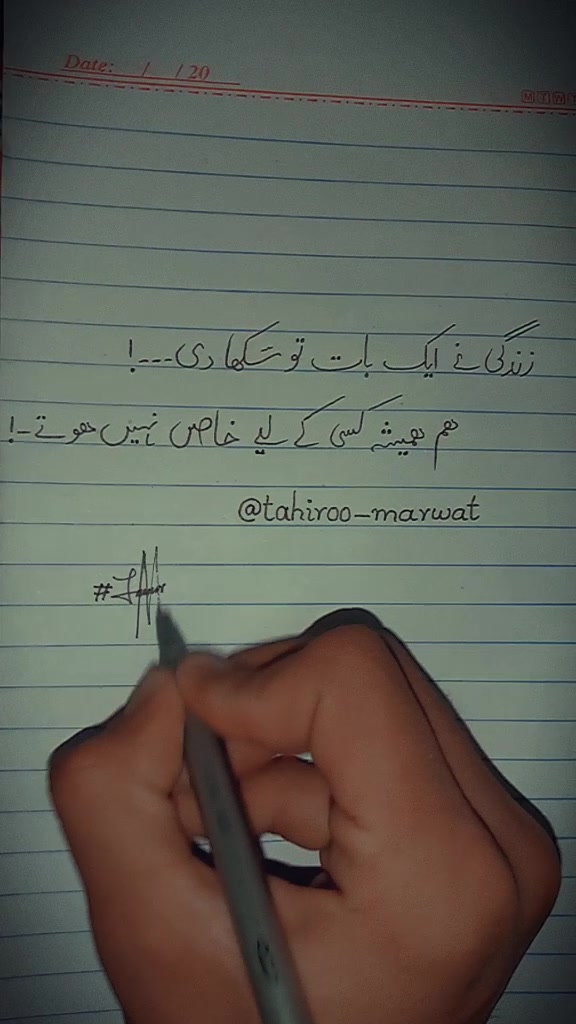 Date: / / 20
M T W T
زندگی نے ایک بات تو سکھا دی---!
ھم ھمیشہ کسی کے لیے خاص نہیں ھوتے-!
@tahiroo-marwat
#